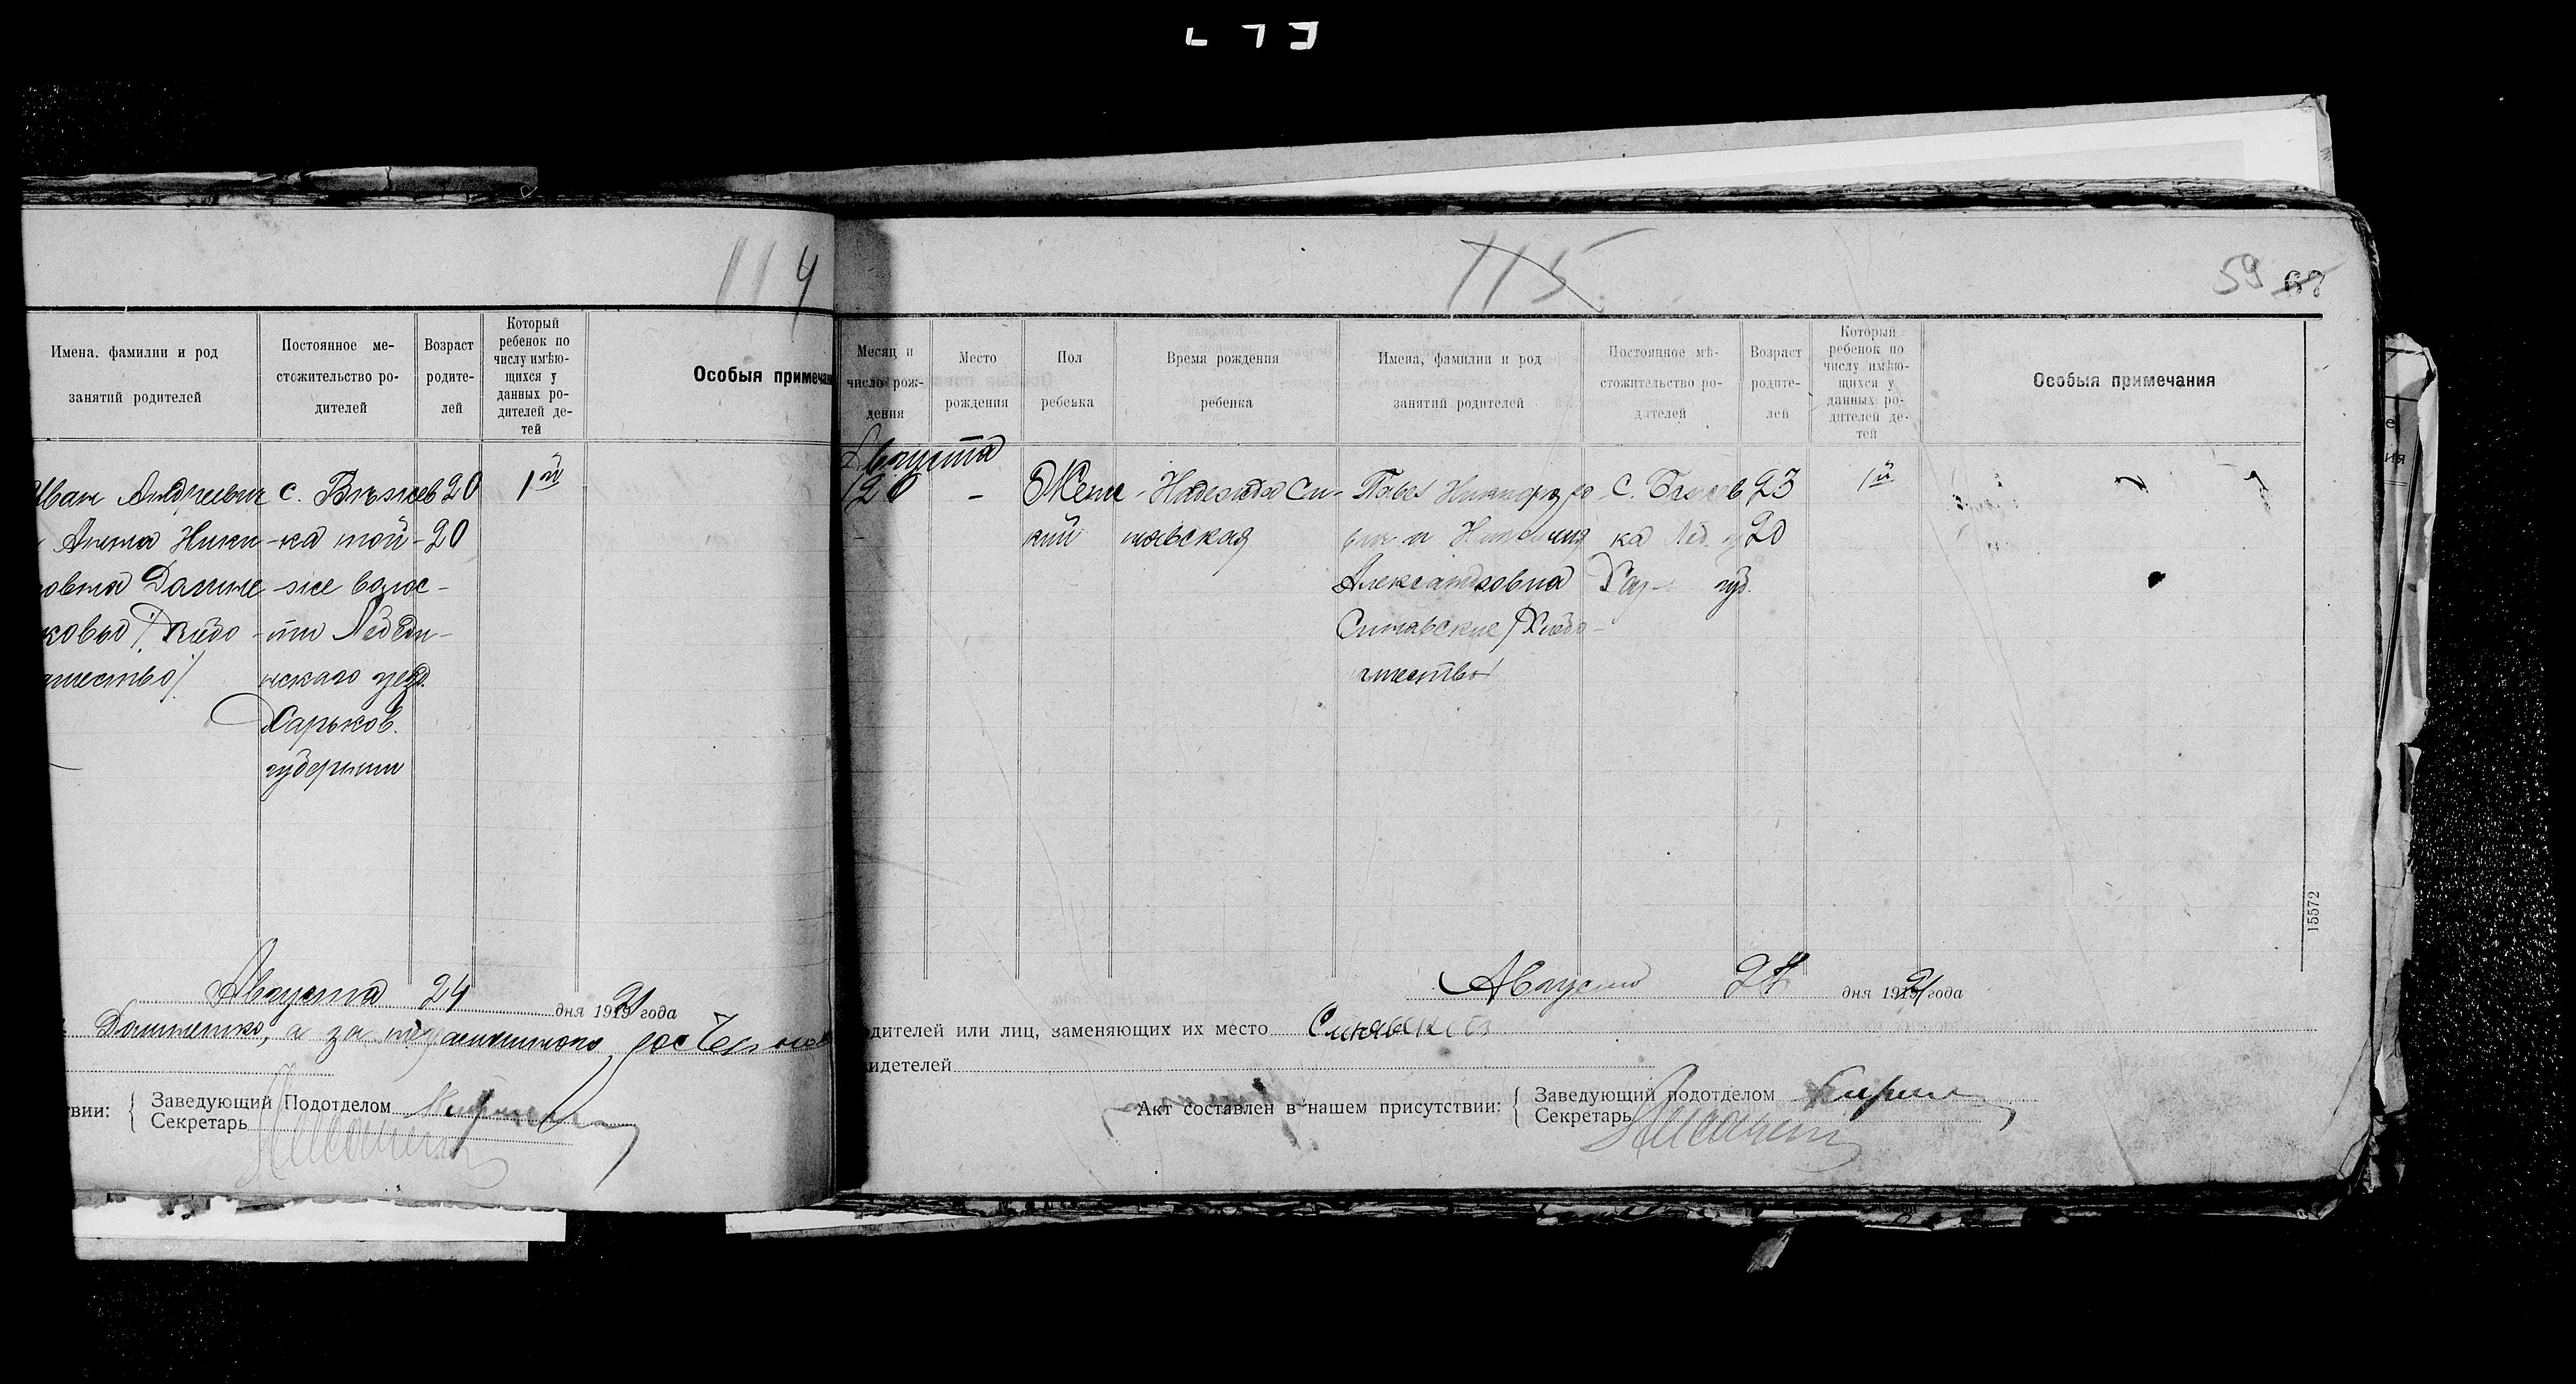 114
Имена. фамилии и род занятий родителей
Постоянное ме-
стожительство ро-
дителей
Возраст
родите-
лей
Который
ребенок по
числу имѣю-
щихся у
данных ро-
дителей де-
тей
Особыя примечан
Иван Андреевич с. Бѣжев 20 1й
Анна Ники -ка той- 20
овна Даниле -же волос-
ковы /Хлѣбо -ти Лебеди-
ашество/ нскаго уезд.
Харьков.
губернии
Августа 24 дня 1921 года
а за
вии:
Заведующий Подотделом
Секретарь
115
59 68
Месяц и
число рож-
дения
Место
рождения
Пол
ребенка
Время рождения
ребенка
Имена, фамилии и род
занятий родителей
Постоянное мѣ-
стожительство ро-
дителей
Возраст
родите-
лей
Который
ребенок по
числу имѣю-
щихся у
данных ро-
дителей де-
тей
Особыя примечания
Августа
20 - Женс- Надежда Си- Павел с. 23 1й
кий нявская ка Леб. 20
Александровна Хар- губ.
Синявские /Хлѣбо-
пашество/
15572
Августа 24 дня 1921 года
одителей или лиц, заменяющих их место Синявский
идетелей
Акт составлен в нашем присутствии:
Заведующий подотделом
Секретарь